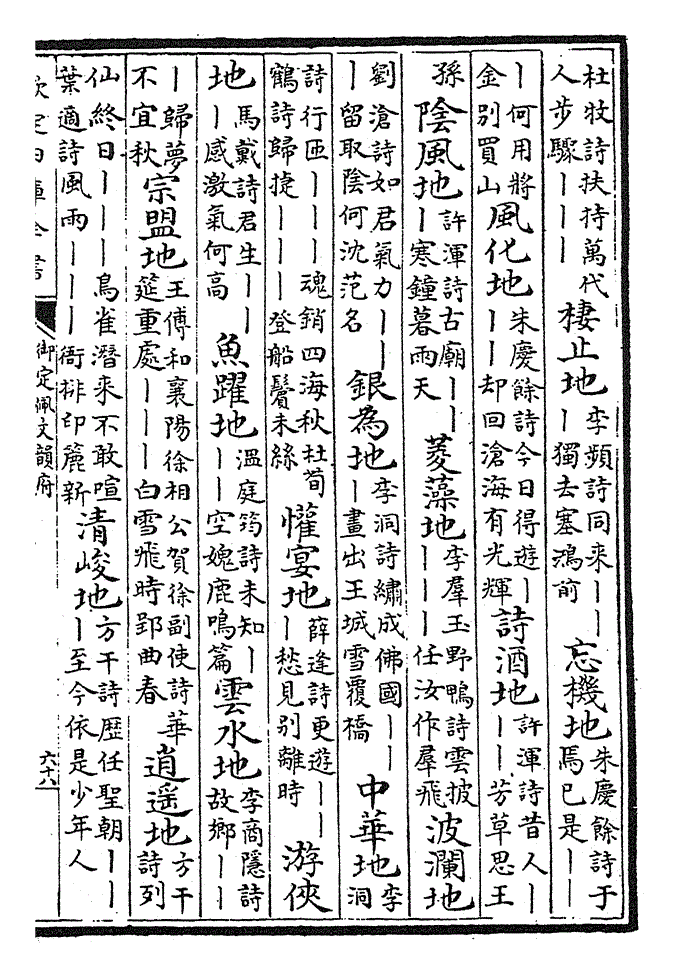 杜牧詩扶持萬代人步驟丨丨丨棲止地李頻詩同來丨丨丨獨去塞鴻前忘機地朱慶餘詩于焉已是丨丨
丨何用將金別買山風化地朱慶餘詩今日得遊丨丨丨却回滄海有光輝詩酒地許渾詩昔人丨丨丨芳草思王
孫陰風地許渾詩古廟丨丨丨寒鐘暮雨天菱藻地李羣玉野鴨詩雲披丨丨丨任汝作羣飛波瀾地
劉滄詩如君氣力丨丨丨留取陰何沈范名銀為地李洞詩繡成佛國丨丨丨畫出王城雪覆橋中華地李洞
詩行匝丨丨丨魂銷四海秋杜荀鶴詩歸捷丨丨丨登船鬢未絲懽宴地薛逢詩更遊丨丨丨愁見別離時游俠
地馬戴詩君生丨丨丨感激氣何高魚躍地溫庭筠詩未知丨丨丨空媿鹿鳴篇雲水地李商隱詩故鄉丨丨
丨歸夢不宜秋宗盟地王傅和襄陽徐相公賀徐副使詩華筵重處丨丨丨白雪飛時郢曲春逍遥地方干詩列
仙終日丨丨丨鳥雀潛來不敢喧葉適詩風雨丨丨丨衙排印簏新清峻地方干詩歴任聖朝丨丨丨至今依是少年人
欽定四庫全書
御定佩文韻府
六十八